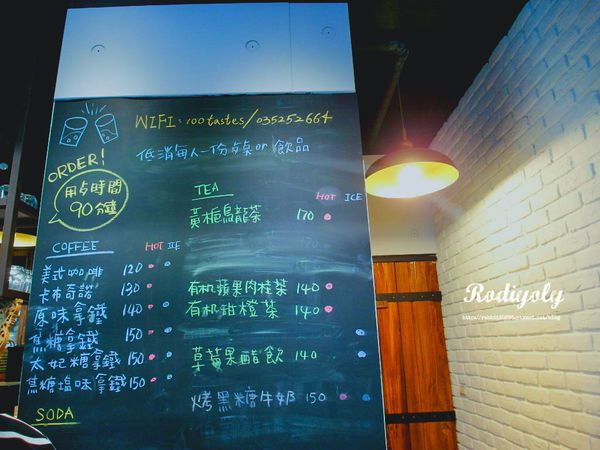 WIFI: 100tastes/035252664
低消每人一份餐or飲品
ORDER!
用点時間
90分鐘
COFFEE HOT ICE
美式咖啡 120
卡布奇諾 130
原味拿鐵 140
焦糖拿鐵 150
太妃糖拿鐵 150
焦糖塩味拿鐵 150
SODA
TEA
HOT ICE
黃梔烏龍茶 170
有机蘋果肉桂茶 140
有机甜橙茶 140
草莓果醋飲 140
烤黑糖牛奶 150
Rodiyoly